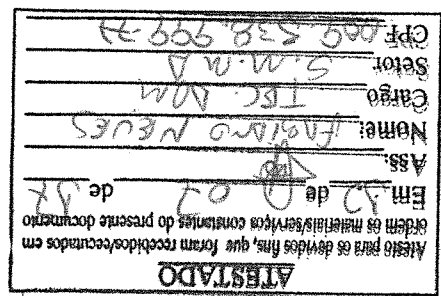 ATESTADO
Atesto para os devidos fins, que foram recebidos/executados em
ordem os materiais/serviços constantes do presente documento
Em de 07 de
Ass:
Nome: FABIANO NEVES
Cargo TEC. ADM
Setor S.M.M.A
CPF 009.538.799-77